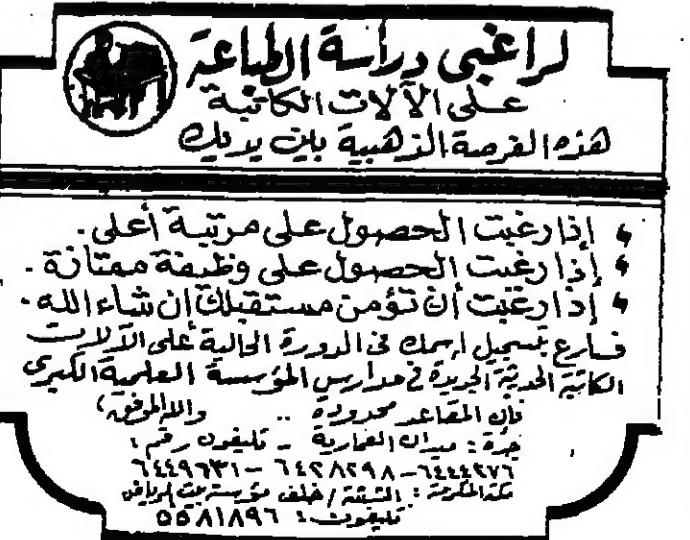 لراغبى دراسة الطباعة
على الآلات الكاتبة
هذه الفرصة الذهبية بين يديك
إذا رغبت الحصول على مرتبة أعلى.
إذا رغبت الحصول على وظيفة ممتازة.
إذا رغبت أن تؤمن مستقبلك ان شاء الله.
فسارع بتسجيل إسمك فى الدورة الحالية على الآلات
الكاتبة الحديثة الجديدة فى مدارس المؤسسة العلمية الكبرى
فإن المقاعد محدودة .. والله الموفق،
جدة: ميدان العمارية - تليفون رقم:
٦٤٤٤٢٧٦-٦٤٢٨٢٩٨-٦٤٤٩٦٣١
مكة المكرمة: الششة/خلف مؤسسة بيت الرياض
تليفون: ٥٥٨١٨٩٦